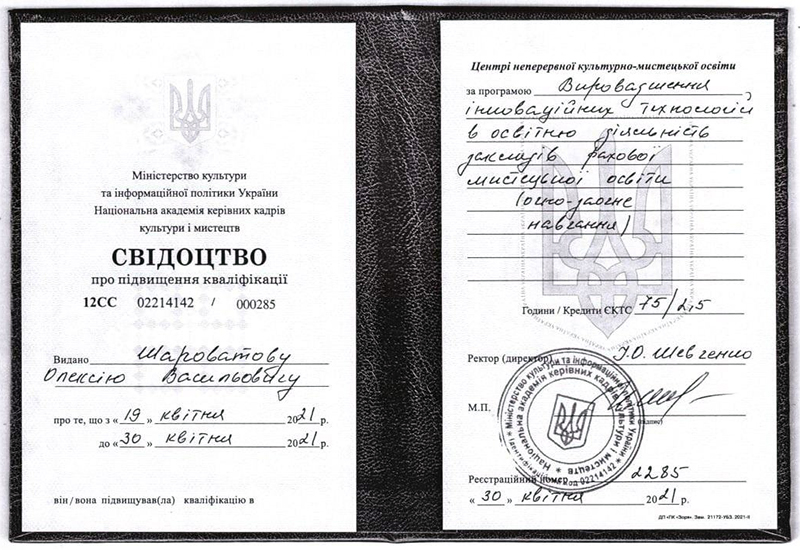 Міністерство культури
та інформаційної політики України
Національна академія керівних кадрів
культури і мистецтв
СВІДОЦТВО
про підвищення кваліфікації
12СС 02214142 / 000285
Видано Шароватову
Олексію Васильовичу
про те, що з «19» квітня 2021р.
до «30» квітня 2021р.
він/вона підвищував(ла) кваліфікацію в
Центрі неперервної культурно-мистецької освіти
за програмою Впровадження
інноваційних технологій
в освітню діяльність
закладів фахової
мистецької освіти
(очно-заочне
навчання)
Години / Кредити ЄКТС 75/2,5
Ректор (директор) І.О. Шевченко
М.П.
(підпис)
Міністерство культури та інформаційної політики України
Національна академія керівних кадрів культури і мистецтв
код 02214142
Реєстраційний номер 2285
«30» квітня 2021р.
ДП «ПК «Зоря». Зам. 21172-УБЗ. 2021-ІІ